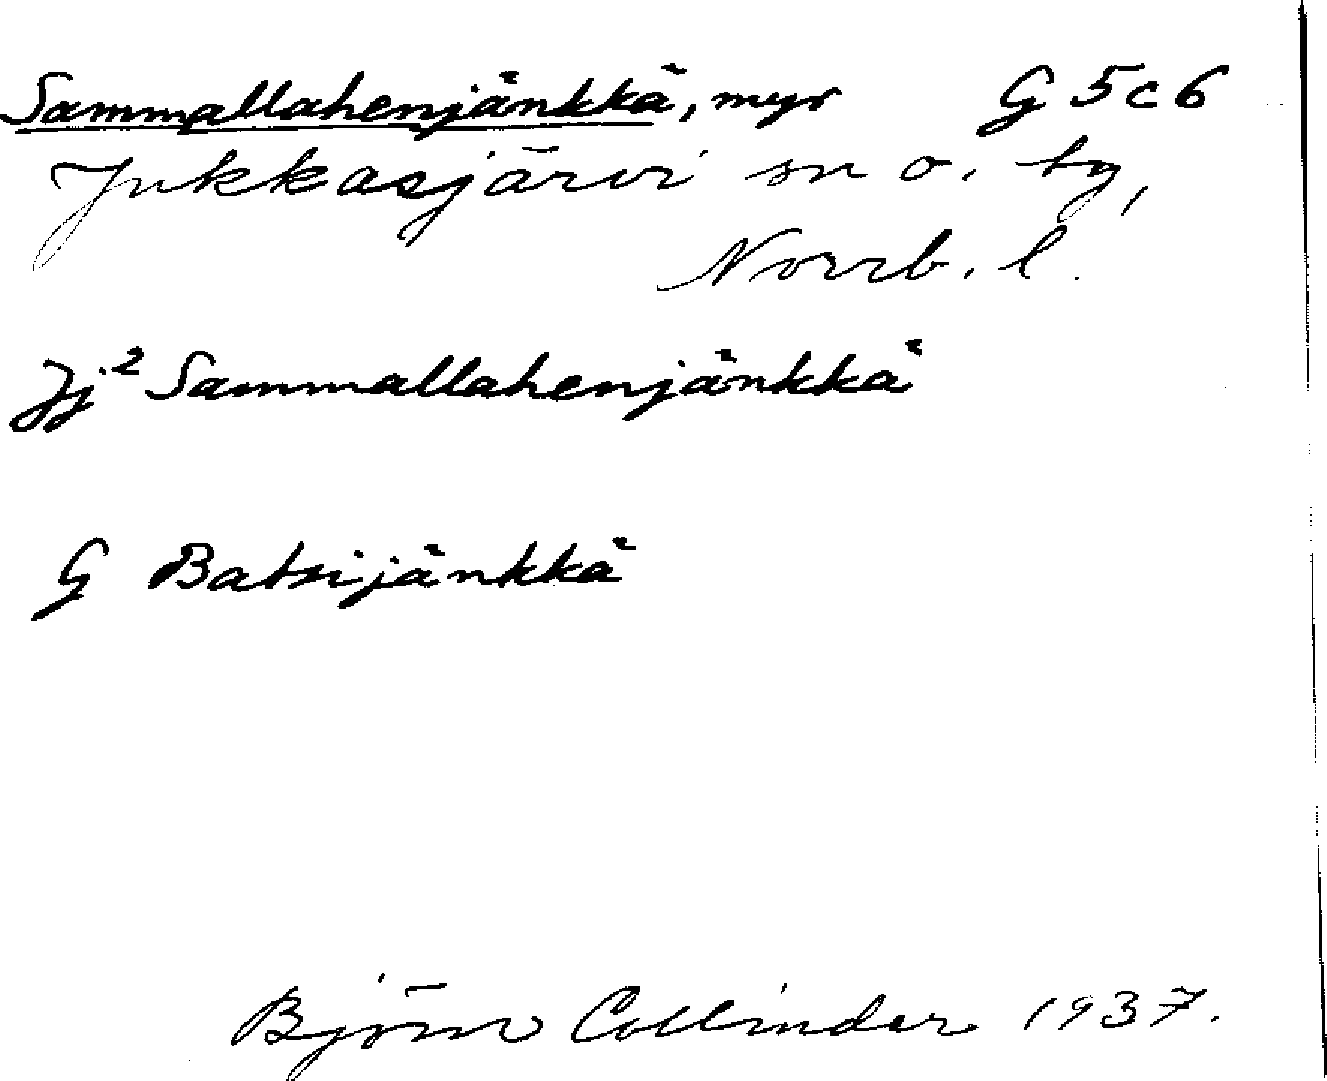 Sammallahenjänkkä, myr G 5c6
Jukkasjärvi sn o. tg,
Norrb. l.
Jj² Sammallahenjänkkä
G Batsijänkkä
Björn Collinder 1937.